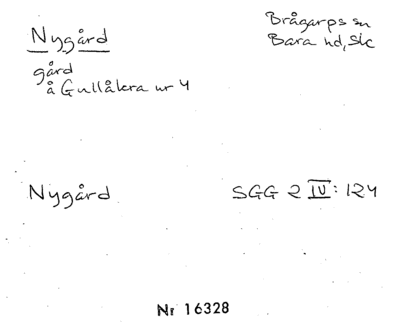 Nygård
Brågarps sn
Bara hd, Sk
gård
å Gullåkra nr 4
Nygård
SGG 2 IV: 124
Nr 16328